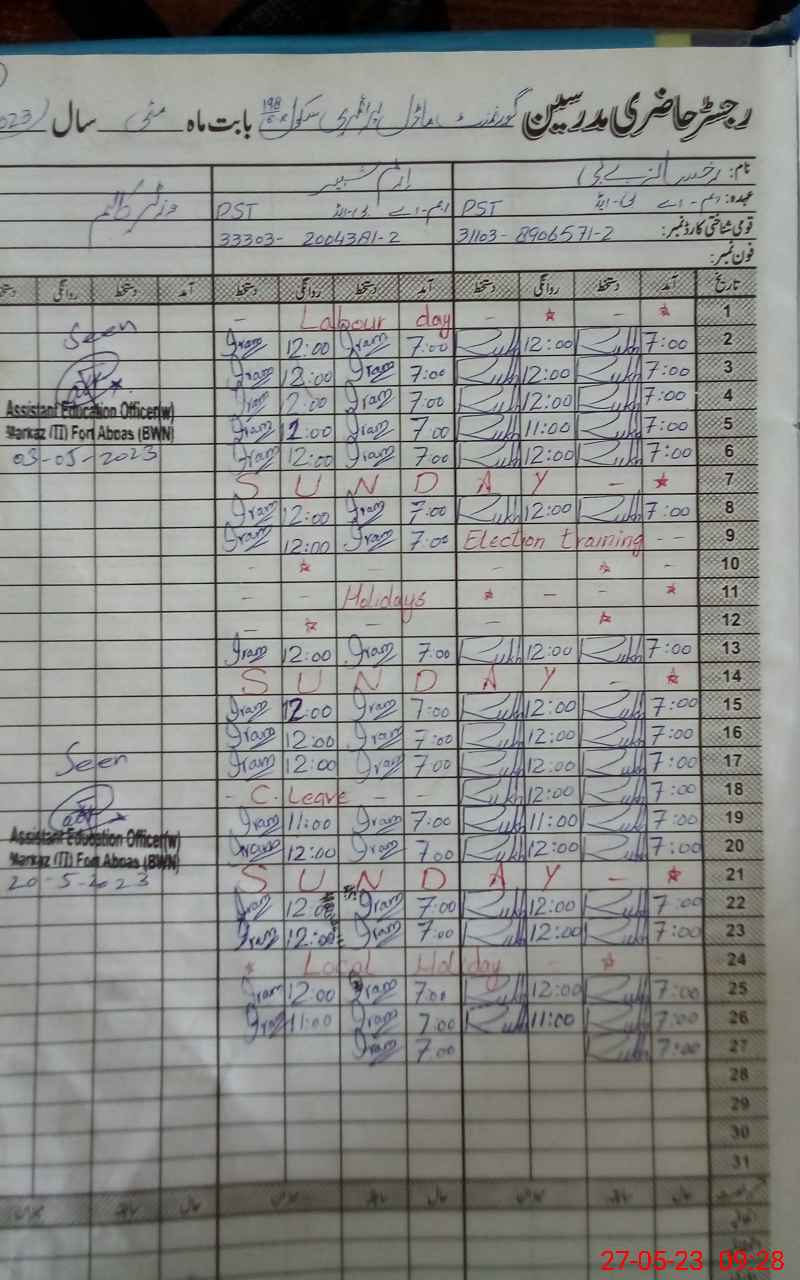 رجسٹر حاضری مدرسین گورنمنٹ ماڈل پرائمری سکول 198 بابت ماہ مئی سال 2023
نام:
ارم شبیر
وزیٹر کالم
عہدہ: ایم-اے بی-ایڈ PST ایم-اے بی-ایڈ PST
قومی شناختی کارڈ نمبر: 31103- 8906571-2 33303- 2004381-2
فون نمبر:
تاریخ آمد دستخط روانگی دستخط آمد دستخط روانگی دستخط آمد دستخط روانگی
1 Labour day
2 7:00 12:00 7:00 Iram 12:00 Iram
Seen
3 7:00 12:00 7:00 Iram 12:00 Iram
4 7:00 12:00 7:00 Iram 12:00 Iram
Assistant Education Officer(w)
5 7:00 11:00 7:00 Iram 12:00 Iram
Markaz (II) Fort Abbas (BWN)
6 7:00 12:00 7:00 Iram 12:00 Iram
03-05-2023
7 SUNDAY
8 7:00 12:00 7:00 Iram 12:00 Iram
9 Election training 7:00 Iram 12:00 Iram
10
11 Holidays
12
13 7:00 12:00 7:00 Iram 12:00 Iram
14 SUNDAY
15 7:00 12:00 7:00 Iram 12:00 Iram
16 7:00 12:00 7:00 Iram 12:00 Iram
17 7:00 12:00 7:00 Iram 12:00 Iram
Seen
18 7:00 12:00 C. Leave
19 7:00 11:00 7:00 Iram 11:00 Iram
Assistant Education Officer(w)
20 7:00 12:00 7:00 Iram 12:00 Iram
Markaz (II) Fort Abbas (BWN)
21 SUNDAY
20-5-2023
22 7:00 12:00 7:00 Iram 12:00 Iram
23 7:00 12:00 7:00 Iram 12:00 Iram
24 Local Holiday
25 7:00 12:00 7:00 Iram 12:00 Iram
26 7:00 11:00 7:00 Iram 11:00 Iram
27 7:00 7:00 Iram
28
29
30
31
27-05-23 09:28